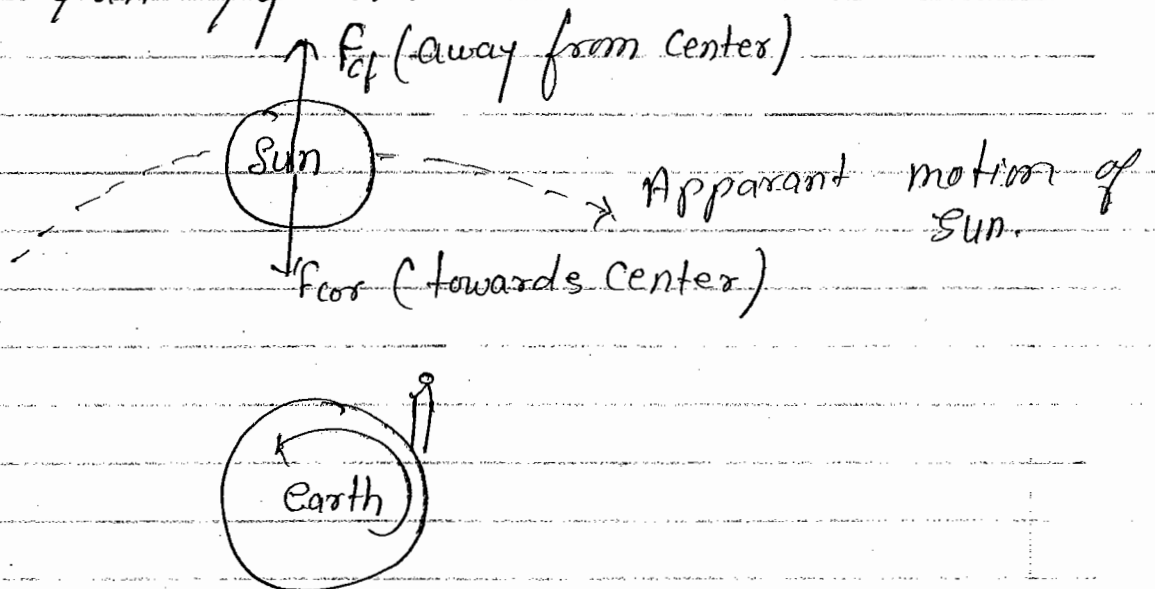 F_cf (away from center)
Sun
Apparant motion of
Sun.
F_cor (towards center)
Earth